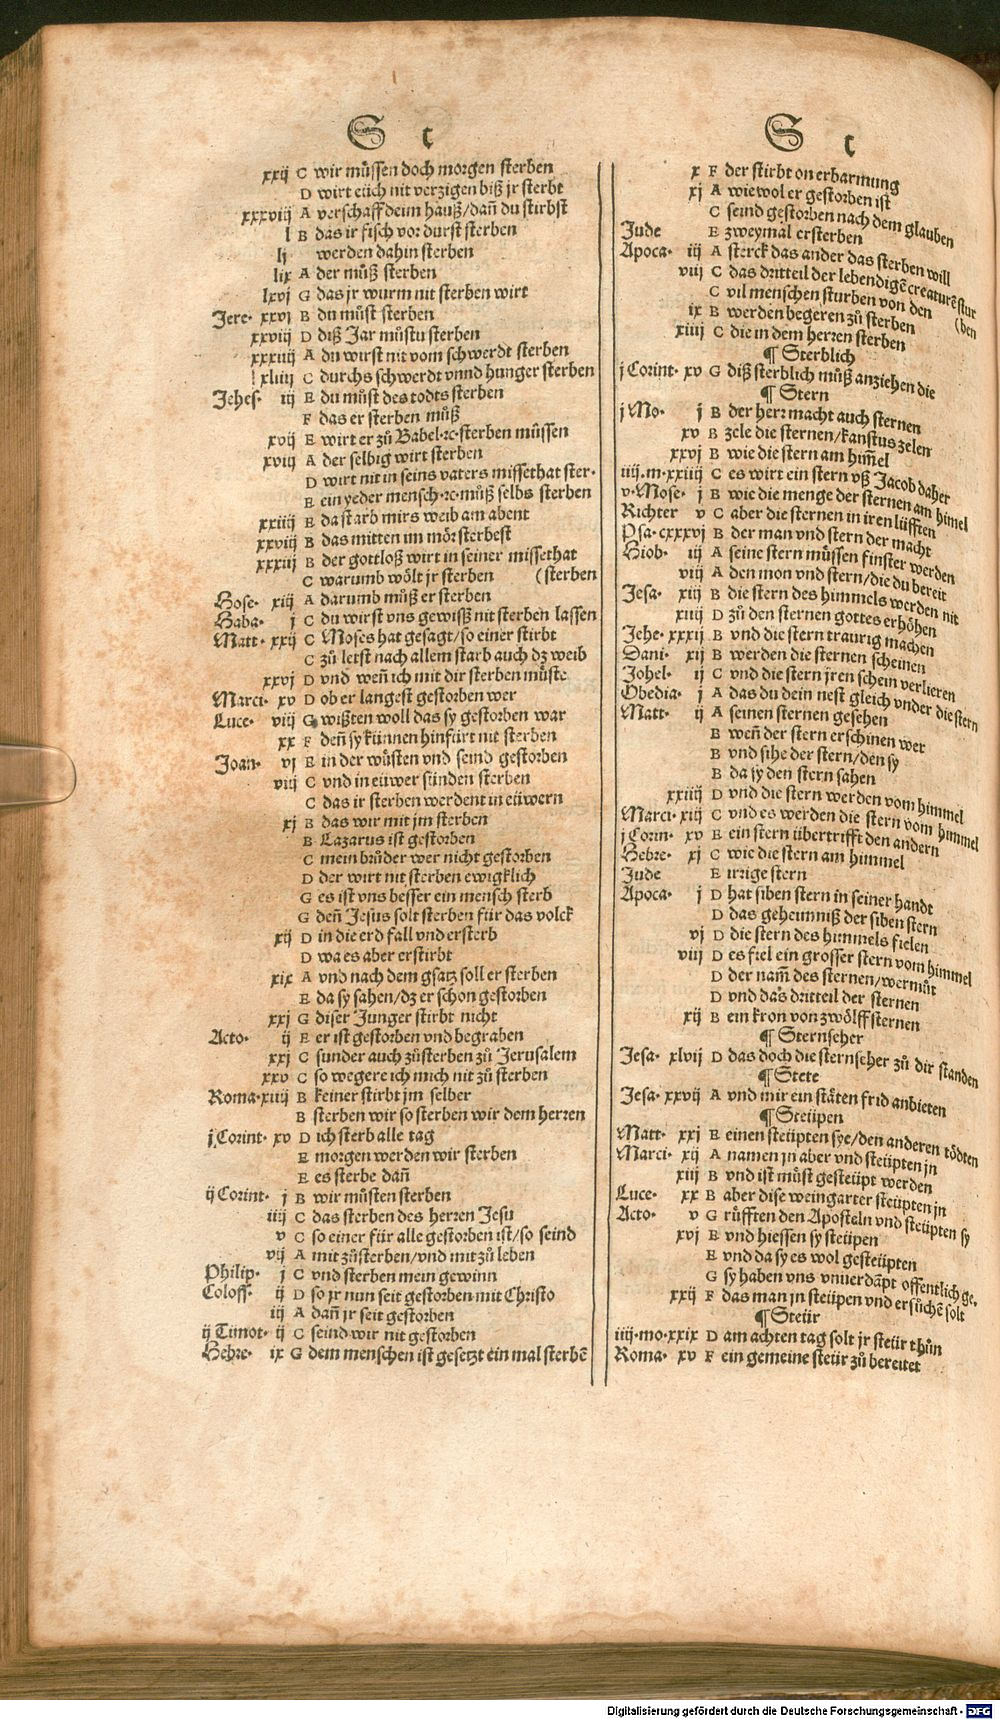 S t
xxij C wir müssen doch morgen sterben
D wirt eüch nit verzigen biß jr sterbt
xxxviij A verschaff deim hauß/dañ du stirbst
l B das ir fisch vor durst sterben
lj werden dahin sterben
lix A der müß sterben
lxvj G das jr wurm nit sterben wirt
Jere· xxvj B du müst sterben
xxviij D diß Jar müstu sterben
xxxiiij A du wirst nit vom schwerdt sterben
xliiij C durchs schwerdt vnnd hunger sterben
Jehes· iij E du müst des todts sterben
F das er sterben müß
xvij E wirt er zů Babel·ꝛc·sterben müssen
xviij A der selbig wirt sterben
D wirt nit in seins vaters missethat ster·
E ein yeder mensch·ꝛc·můß selbs sterben
xxiiij E da starb mirs weib am abent
xxviij B das mitten im mör sterbest
xxxiij B der gottloß wirt in seiner missethat
C warumb wölt jr sterben (sterben
Hose· xiij A darumb můß er sterben
Haba· j C du wirst vns gewißß nit sterben lassen
Matt· xxij C Moses hat gesagt/so einer stirbt
C zů letst nach allem starb auch dz weib
xxvj D vnd weñ ich mit dir sterben müste
Marci· xv D ob er langest gestorben wer
Luce· viij G wißten woll das sy gestorben war
xx F deñ sy künnen hinfürt nit sterben
Joan· vj E in der wüsten vnd seind gestorben
viij C vnd in eüwer sünden sterben
C das ir sterben werdent in eüwern
xj B das wir mit jm sterben
B Lazarus ist gestorben
C mein brůder wer nicht gestorben
D der wirt nit sterben ewigklich
G es ist vns besser ein mensch sterb
G deñ Jesus solt sterben für das volck
xij D in die erd fall vnd ersterb
D wa es aber erstirbt
xix A vnd nach dem gsatz soll er sterben
E da sy sahen/dz er schon gestorben
xxj G diser Junger stirbt nicht
Acto· ij E er ist gestorben vnd begraben
xxj C sunder auch zůsterben zů Jerusalem
xxv C so wegere ich mich nit zů sterben
Roma·xiiij B keiner stirbt jm selber
B sterben wir so sterben wir dem herren
j Corint· xv D ich sterb alle tag
E morgen werden wir sterben
E es sterbe dañ
ij Corint· j B wir müsten sterben
iiij C das sterben des herren Jesu
v C so einer für alle gestorben ist/so seind
vij A mit zůsterben/vnd mit zů leben
Philip· j C vnd sterben mein gewinn
Coloss· ij D so jr nun seit gestorben mit Christo
iij A dañ jr seit gestorben
ij Timot· ij C seind wir nit gestorben
Hebre· ix G dem menschen ist gesetzt ein mal sterbē
S t
x F der stirbt on erbarmung
xj A wiewol er gestorben ist
C seind gestorben nach dem glauben
Jude E zweymal ersterben
Apoca· iij A sterck das ander das sterben will
viij C das dritteil der lebendigē creaturē stur
C vil menschen sturben von den (ben
ix B werden begeren zů sterben
xiiij C die in dem herren sterben
¶ Sterblich
j Corint· xv G diß sterblich můß anziehen die
¶ Stern
j Mo· j B der herr macht auch sternen
xv B zele die sternen/kanstus zelen
xxvj B wie die stern am him̄el
iiij.m·xxiiij C es wirt ein stern vß Jacob daher
v·Mose· j B wie die menge der sternen am himel
Richter v C aber die sternen in iren lüfften
Psa·cxxxvj B der man vnd stern der macht
Hiob· iij A seine stern müssen finster werden
viij A den mon vnd stern/die du bereit
Jesa· xiij B die stern des himmels werden nit
xiiij D zů den sternen gottes erhöhen
Jehe·xxxij B vnd die stern traurig machen
Dani· xij B werden die sternen scheinen
Johel· ij C vnd die stern jren schein verlieren
Obedia· j A das du dein nest gleich vnder die stern
Matt· ij A seinen sternen gesehen
B weñ der stern erschinen wer
B vnd sihe der stern/den sy
B da sy den stern sahen
xxiiij D vnd die stern werden vom himmel
Marci·xiij C vnd es werden die stern vom himmel
j Corin· xv E ein stern übertrifft den andern
Hebre· xj C wie die stern am himmel
Jude E irrige stern
Apoca· j D hat siben stern in seiner handt
D das geheimniß der siben stern
vj D die stern des himmels fielen
viij D es fiel ein grosser stern vom himmel
D der nam̄ des sternen/wermůt
D vnd das dritteil der sternen
xij B ein kron von zwölff sternen
¶ Sternseher
Jesa· xlvij D das doch die sternseher zů dir standen
¶ Stete
Jesa·xxvij A vnd mir ein stäten frid anbieten
¶ Steüpen
Matt· xxj E einen steüpten sye/den anderen tödten
Marci· xij A namen jn aber vnd steüpten jn
xiij B vnd ist müst gesteüpt werden
Luce· xx B aber dise weingarter steüpten jn
Acto· v G růfften den Aposteln vnd steüpten sy
xvj E vnd hiessen sy steüpen
E vnd da sy es wol gesteüpten
G sy haben vns vnuerdāpt offentlich ge.
xxij F das man jn steüpen vnd ersůchē solt
¶ Steür
iiij·mo·xxix D am achten tag solt jr steür thůn
Roma· xv F ein gemeine steür zů bereitet
Digitalisierung gefördert durch die Deutsche Forschungsgemeinschaft - DFG